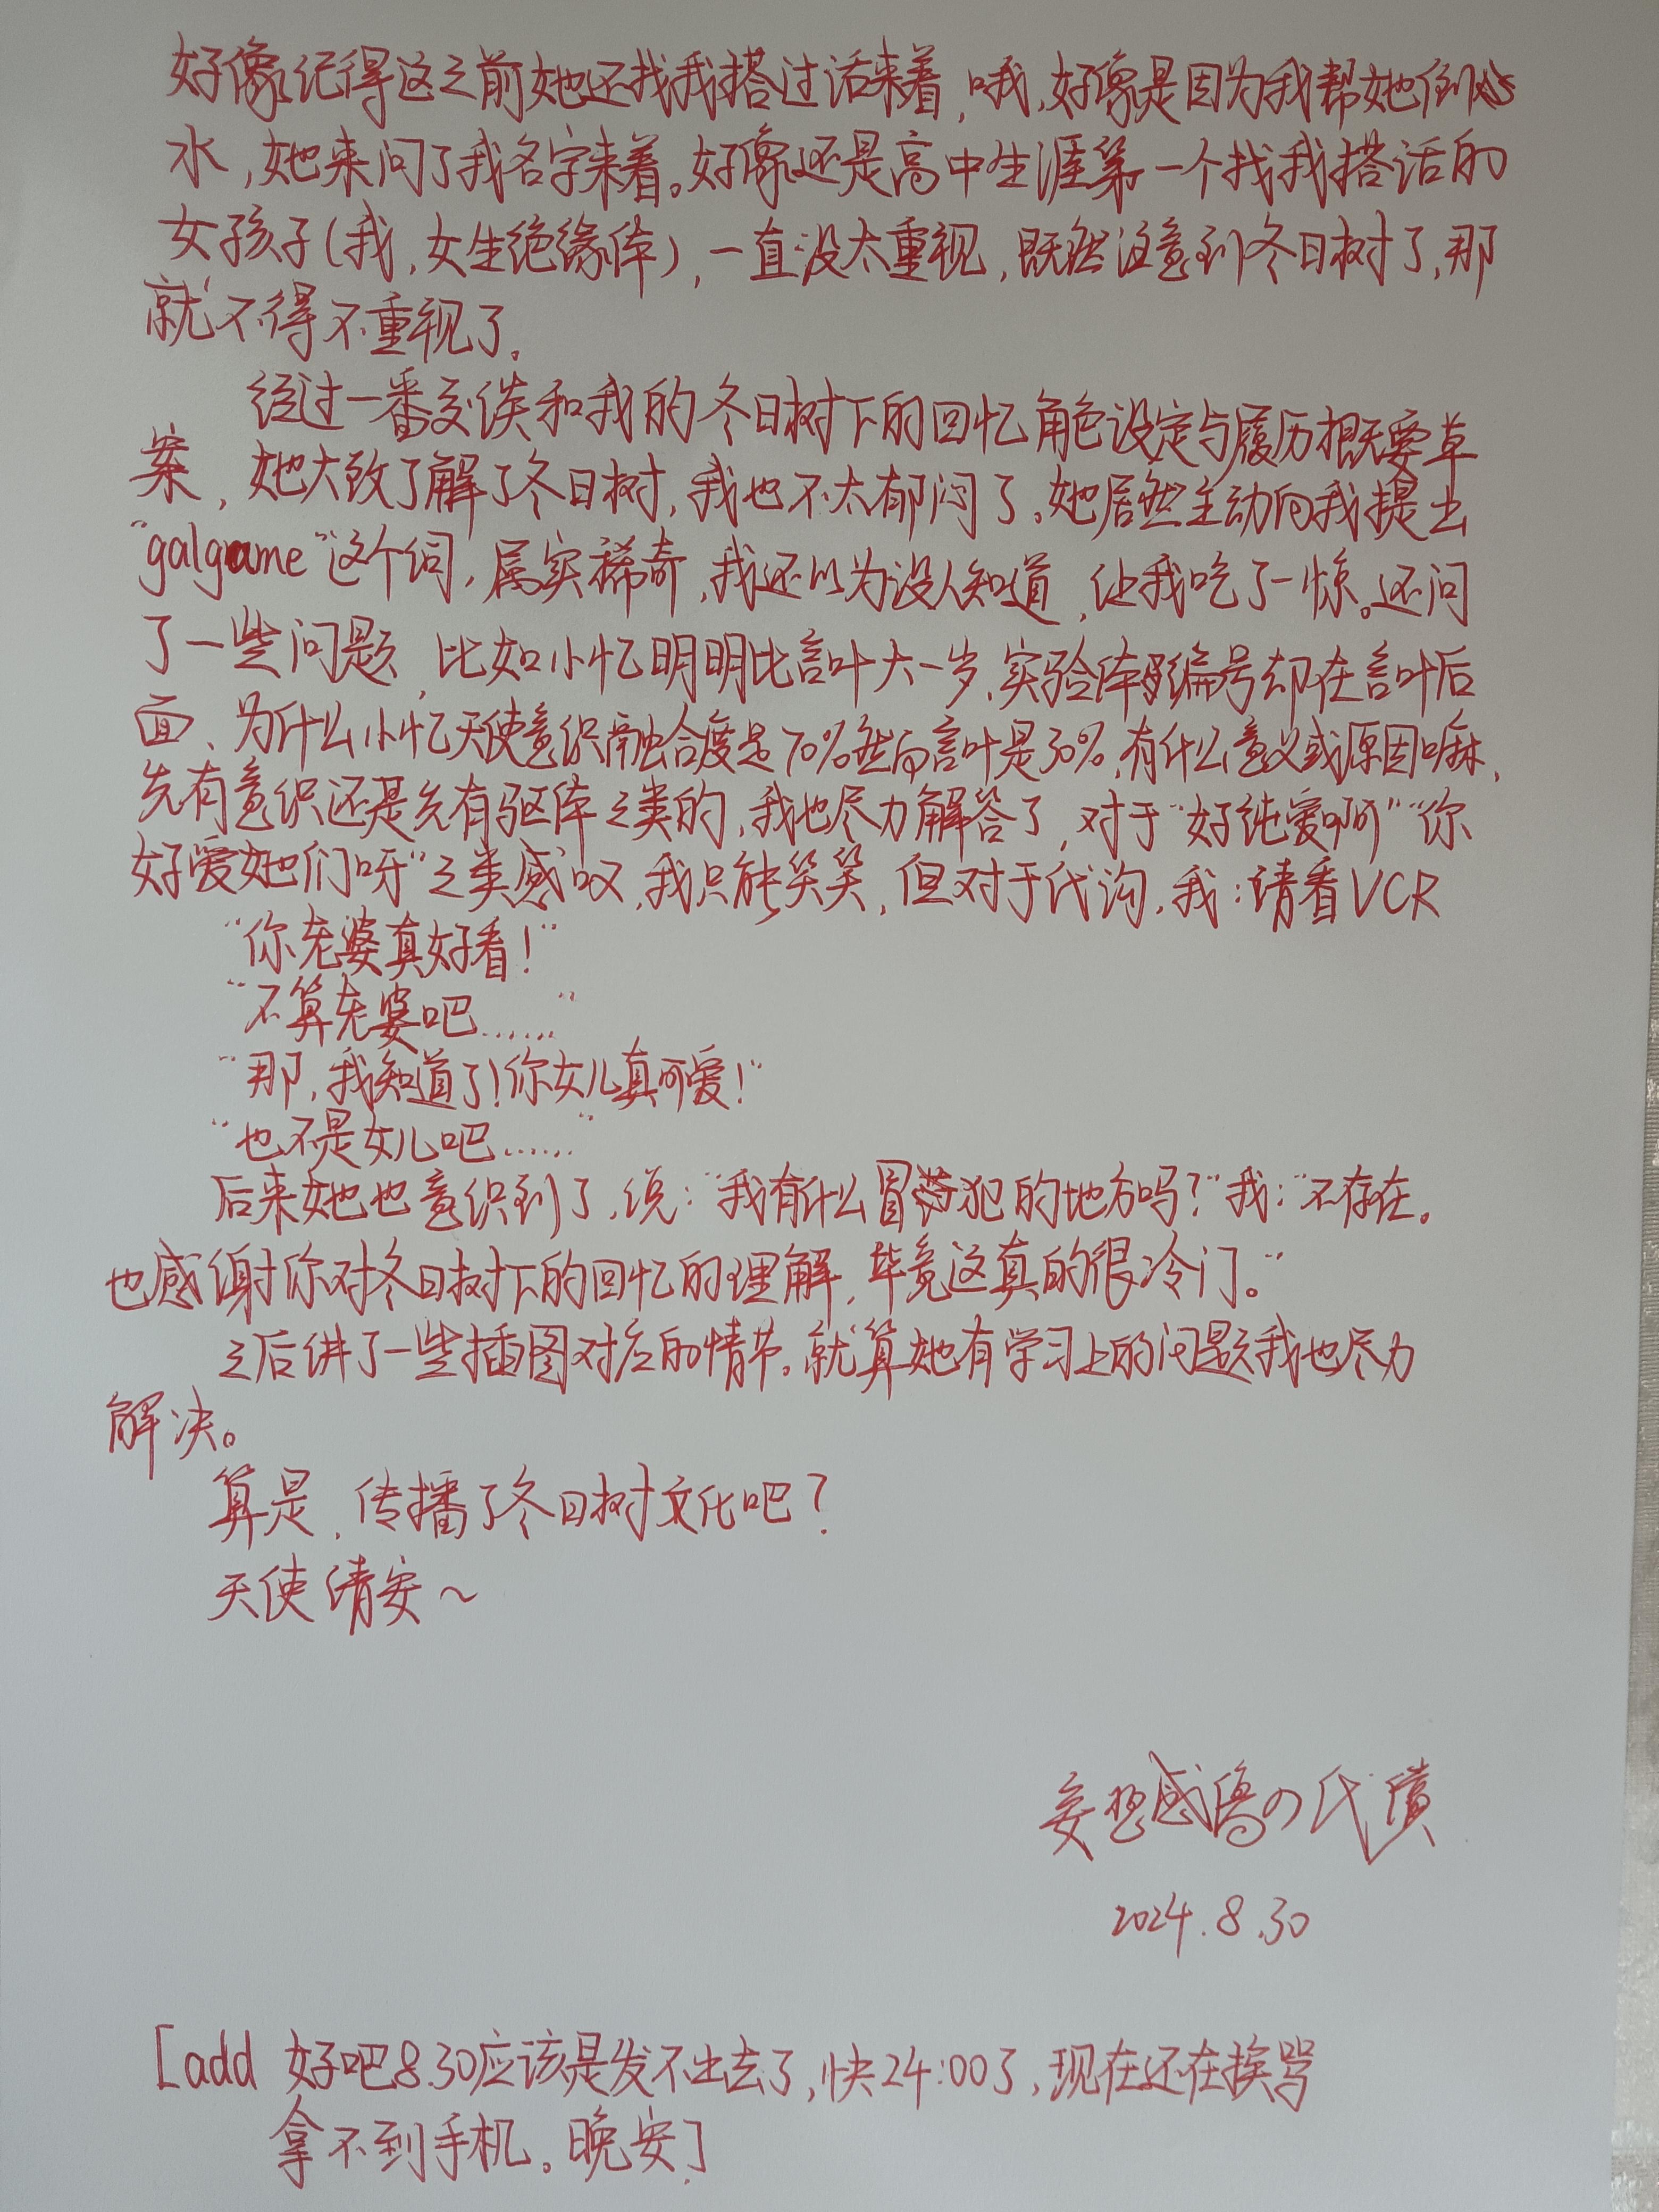 好像记得这之前她还找我搭过话来着，哦，好像是因为我帮她倒
水，她来问了我名字来着。好像还是高中生涯第一个找我搭话的
女孩子(我，女生绝缘体)，一直没太重视，既然注意到冬日树了，那
就不得不重视了。
经过一番交谈和我的冬日树下的回忆角色设定与履历概要草
案，她大致了解了冬日树，我也不太郁闷了。她居然主动向我提出
“galgame”这个词，属实稀奇，我还以为没人知道，让我吃了一惊。还问
了一些问题，比如小忆明明比言叶大一岁，实验体编号却在言叶后
面、为什么小忆天使意识融合度是70%然而言叶是30%，有什么意义或原因嘛、
先有意识还是先有驱体之类的，我也尽力解答了，对于“好纯爱啊”“你
好爱她们呀”之类感叹，我只能笑笑，但对于代沟，我：请看VCR
“你老婆真好看！”
“不算老婆吧……”
“那，我知道了！你女儿真可爱！”
“也不是女儿吧……”
后来她也意识到了，说：“我有什么冒犯的地方吗？”我：“不存在。
也感谢你对冬日树下的回忆的理解，毕竟这真的很冷门。”
之后讲了一些插图对应的情节。就算她有学习上的问题我也尽力
解决。
算是，传播了冬日树文化吧？
天使请安～
妄想感傷の代償
2024.8.30
[add 好吧8.30应该是发不出去了，快24:00了，现在还在挨骂
拿不到手机。晚安]